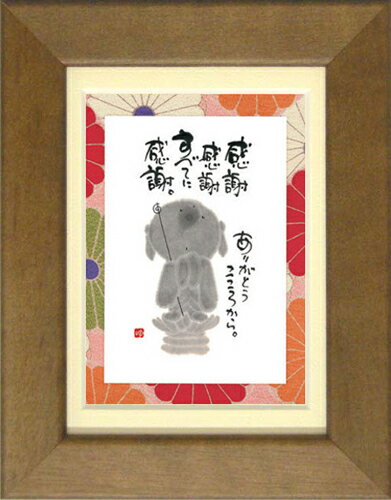 感謝
感謝
すべてに
感謝。
ありがとう
こころから。